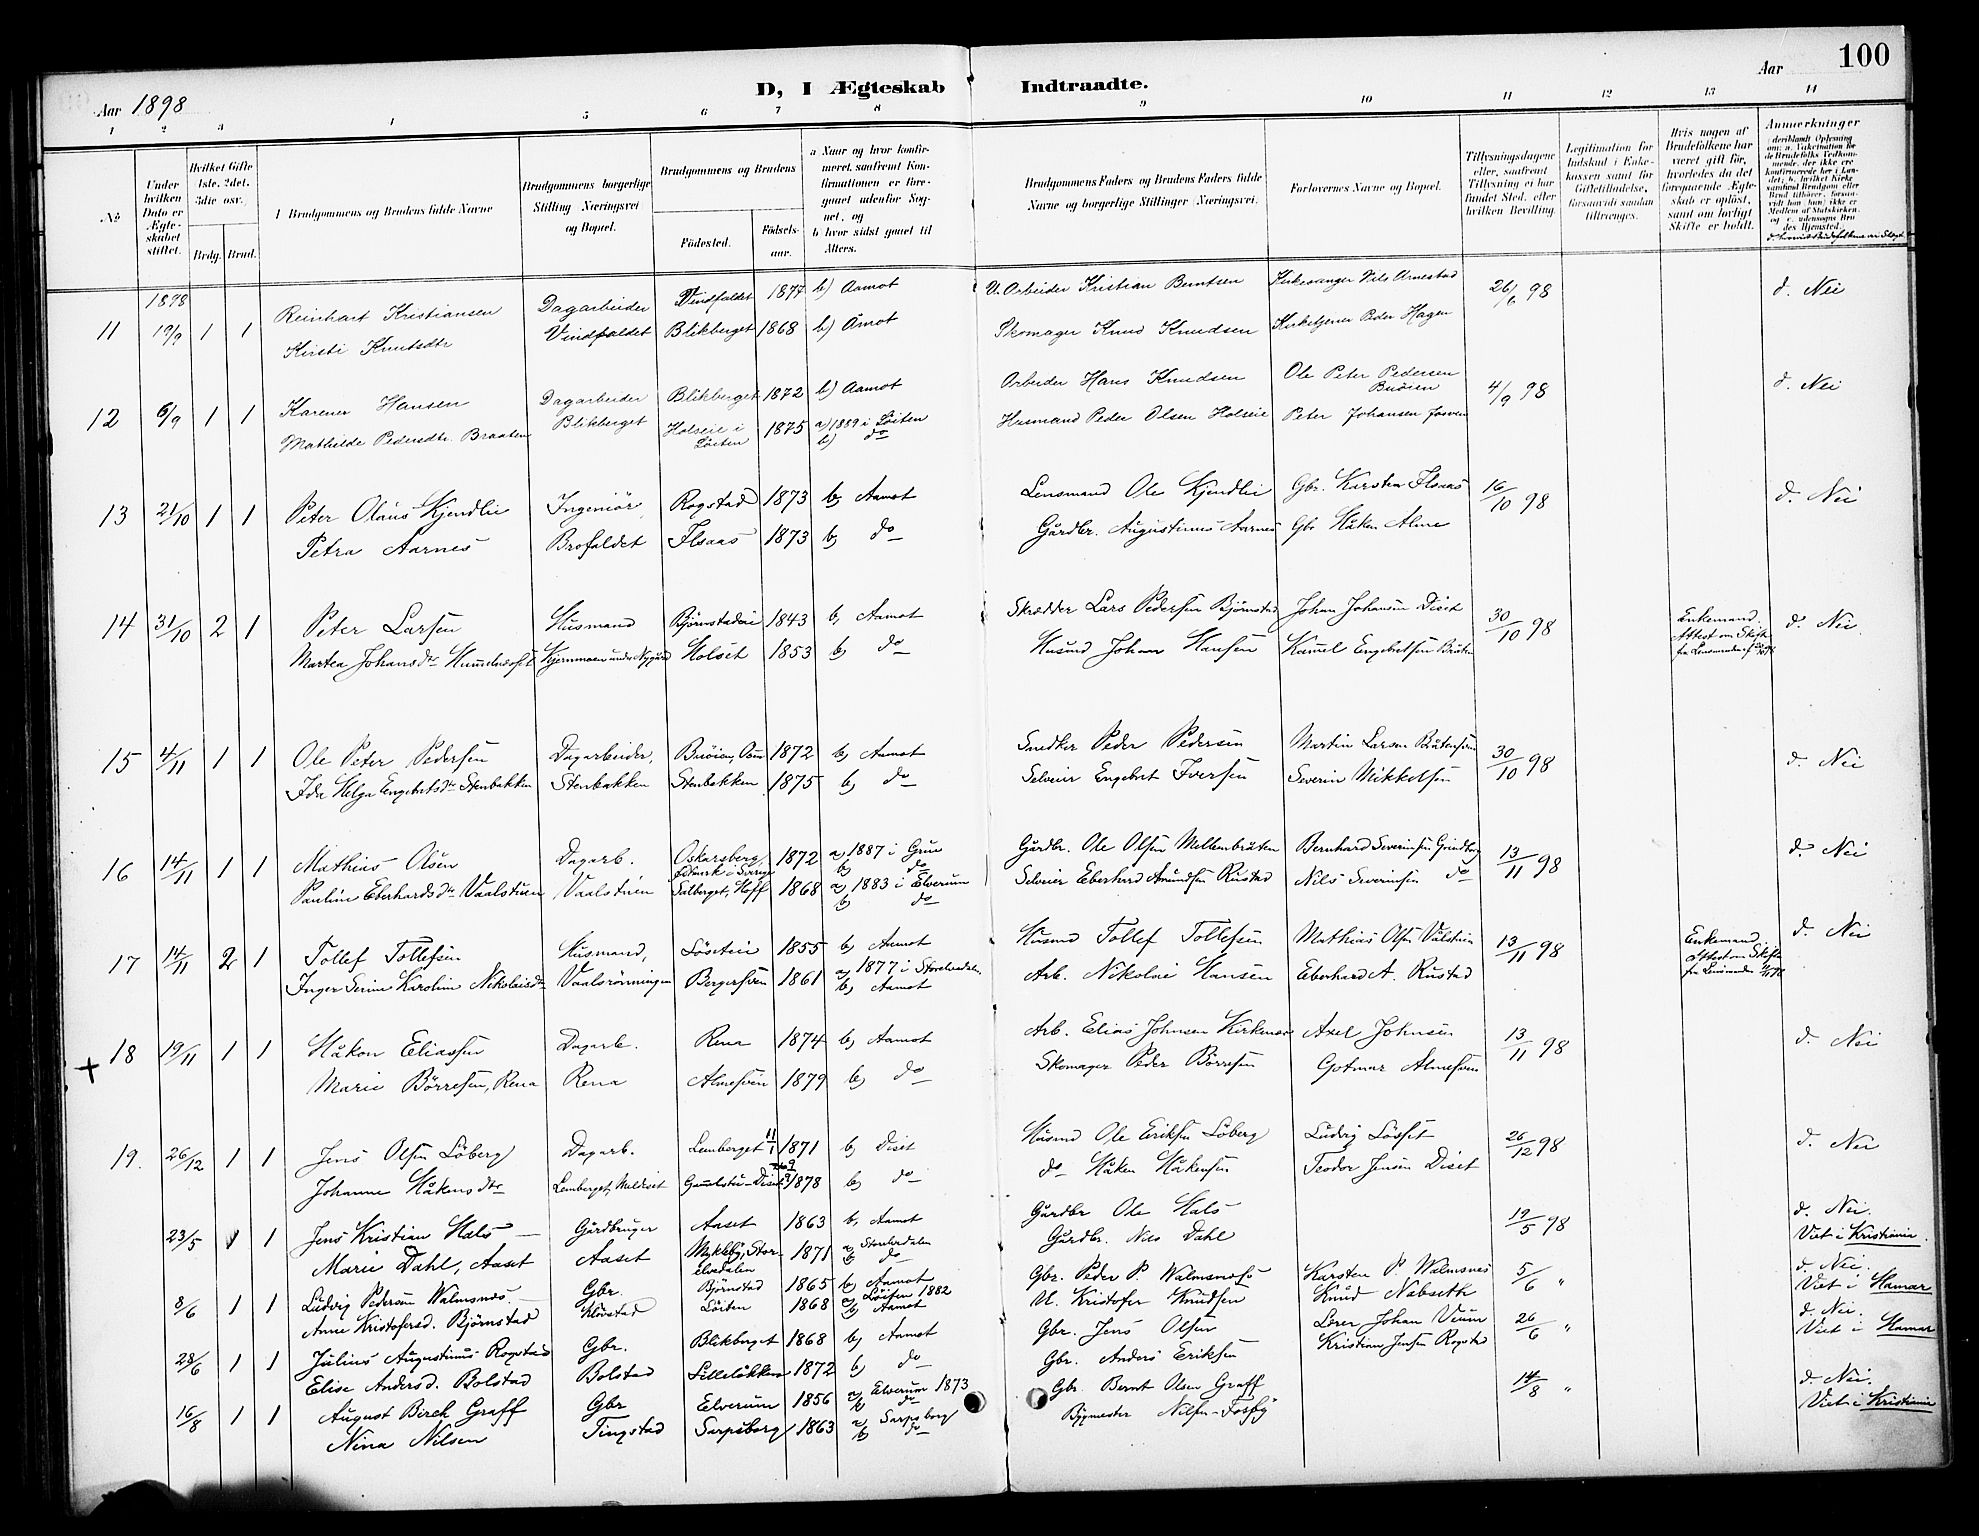 Aar 1898
D, I Ægteskab Indtraadte.
Aar
100
1 2 3 4 5 6 7 8 9 10 11 12 13 14
No
Under hvilken Dato er Ægteskabet stiftet.
Hvilket Gifte 1ste, 2det, 3die osv.
Brdg. Brud.
Brudgommens og Brudens fulde Navne
Brudgommens borgerlige Stilling Næringsvei og Bopæl.
Brudgommens og Brudens
Fødested.
Fødselsaar.
a Naar og hvor konfirmeret, saafremt Konfirmationen er foregaaet udenfor Sognet, og
b hvor sidst gaaet til Alters.
Brudgommens Faders og Brudens Faders fulde Navne og borgerlige Stillinger (Næringsvei.
Forlovernes Navne og Bopæl.
Tillysningsdagene eller, saafremt Tillysning ei har fundet Sted, efter hvilken Bevilling.
Legitimation for Indskud i Enkekassen samt for Giftetilladelse, forsaavidt saadan tiltrænges.
Hvis nogen af Brudefolkene har været gift før, hvorledes da det foregaaende Ægteskab er opløst, samt om lovligt Skifte er holdt.
Anmerkninger
11 1898 19/9 1 1 Reinhart Kristiansen Dagarbeider Vindfaldet 1877 b) Aamot U. Arbeider Kristian Berntsen Kirkesanger Nils Arnestad 26/6 98 d. Nei
Kirsti Knutsdtr Vindfaldet Blikberget 1868 b) Åmot Skomager Knud Knudsen Kirketjener Peder Hagen
12 6/9 1 1 Karener Hansen Dagarbeider Blikberget 1872 b) Aamot Arbeider Hans Knudsen Ole Peter Pedersen Buöien 4/9 98 d. Nei
Mathilde Pedersdtr. Braaten Blikberget Holseie i Löiten 1875 a) 1889 i Löiten b) do Husmand Peder Olsen Holseie Peter Johansen
13 21/10 1 1 Peter Olaus Kjendlie Ingeniör Rogstad 1873 b) Aamot Lensmand Ole Kjendlie Gbr. Karsten Flsaas 16/10 98 d. Nei
Petra Aarnes Brofaldet Flsaas 1873 b) do Gårdbr. Augustinus Aarnes Gbr Håken Alme
14 31/10 2 1 Peter Larsen Husmand Björnstadeie 1843 b, Aamot Skrædder Lars Pedersen Björnstad Johan Johansen Diset 30/10 98 Enkemand. Attest om Skifte fra Lensmanden d. Nei.
Martea Johansdtr Kjernmoen under Nygård Holset 1853 b) do Husmd Johan Hansen Kamel Engebretsen Bråten
15 4/11 1 1 Ole Peter Pedersen Dagarbeider, Buöien, 1872 b) Aamot Snedker Peder Pedersen Martin Larsen 30/10 98 d. Nei
Ida Helga Engebretsdtr Stenbakken Stenbakken Stenbakken 1875 b) do Selveier Engebret Iversen Severin Mikkelsen
16 14/11 1 1 Mathias Olsen Dagarb. Oskarsberg, 1872 a) 1887 i Grue b) do Gårdbr. Ole Olsen Mellembråten Bernhard Severinsen Grindberg 13/11 98 d. Nei
Pauline Eberhardsdtr Vaalstuen Vaalstuen Hoff 1868 a) 1883 i Elverum b) do Selveier Eberhard Amundsen Rustad Nils Severinsen do
17 14/11 2 1 Tollef Tollefsen Husmand, Löseteie 1855 b) Aamot Husmd Tollef Tollefsen Mathias Olsen Välstuen 13/11 98 Enkemand Attest om Skifte fra Lensmanden d. Nei
Inger Serine Karoline Nikolaisdtr Vaalsrönningen Bergersveen 1861 a) 1877 i Storelvedalen b) Aamot Arb. Nikolai Hansen Eberhard A. Rustad
+ 18 19/11 1 1 Håkon Eliassen Dagarb. Rena 1874 b) Aamot Arb. Elias Johnsen Kirkemo Axel Johnsen 13/11 98 d. Nei
Marie Börresen, Rena Rena Almesveen 1879 b) do Skomager Peder Börresen Gotmar Almesveen
19. 26/12 1 1 Jens Olsen Löberg Dagarb. Lemberget 11/1 1871 b) Diset Husmd Ole Eriksen Löberg Ludvig Lösset 26/12 98 d. Nei
Johanne Håkensdtr Lemberget, Meldset Diset 1878 b) do do Håken Håkensen Teodor Jensen Diset
23/5 1 1 Jens Kristian Hals Gårdbruger Aaset 1863 b, Aamot Gårdbr Ole Hals 19/5 98 d. Nei.
Marie Dahl, Aaset Aaset Mykleby, Storelvedalen 1871 a) Storelvedalen b) do Gårdbr. Nils Dahl Viet i Kristiania.
8/6 1 1 Ludvig Pedersen Walmsnæs Gbr. Björnstad 1865 b) Aamot Gbr. Peder P. Walmsnæs Karsten P. Walmsnes 5/6 " d. Nei.
Anne Kristofersd. Björnstad Kløvstad Löiten 1868 a) Löiten 1882 b) Aamot U. Kristofer Knudsen Knud Nabseth Viet i Hamar
28/6 1 1 Julius Augustinus Rogstad Gbr. Blikberget 1868 b) Aamot Gbr. Jens Olsen Lærer Johan Veum 26/6 " d. Nei.
Elise Andersd. Bolstad Bolstad Lillelökken 1872 b) do Gbr. Anders Eriksen Kristian Jensen Rogstad Viet i Hamar
16/8 1 1 August Birch Graff Gbr Elverum 1856 a) Elverum 1873 b) do Gbr. Bernt Olsen Graff 14/8 " d. Nei.
Nina Nilsen Tingstad Sarpsborg 1863 a) Sarpsborg b) do Bygmester Nilsen-Fosby Viet i Kristiania